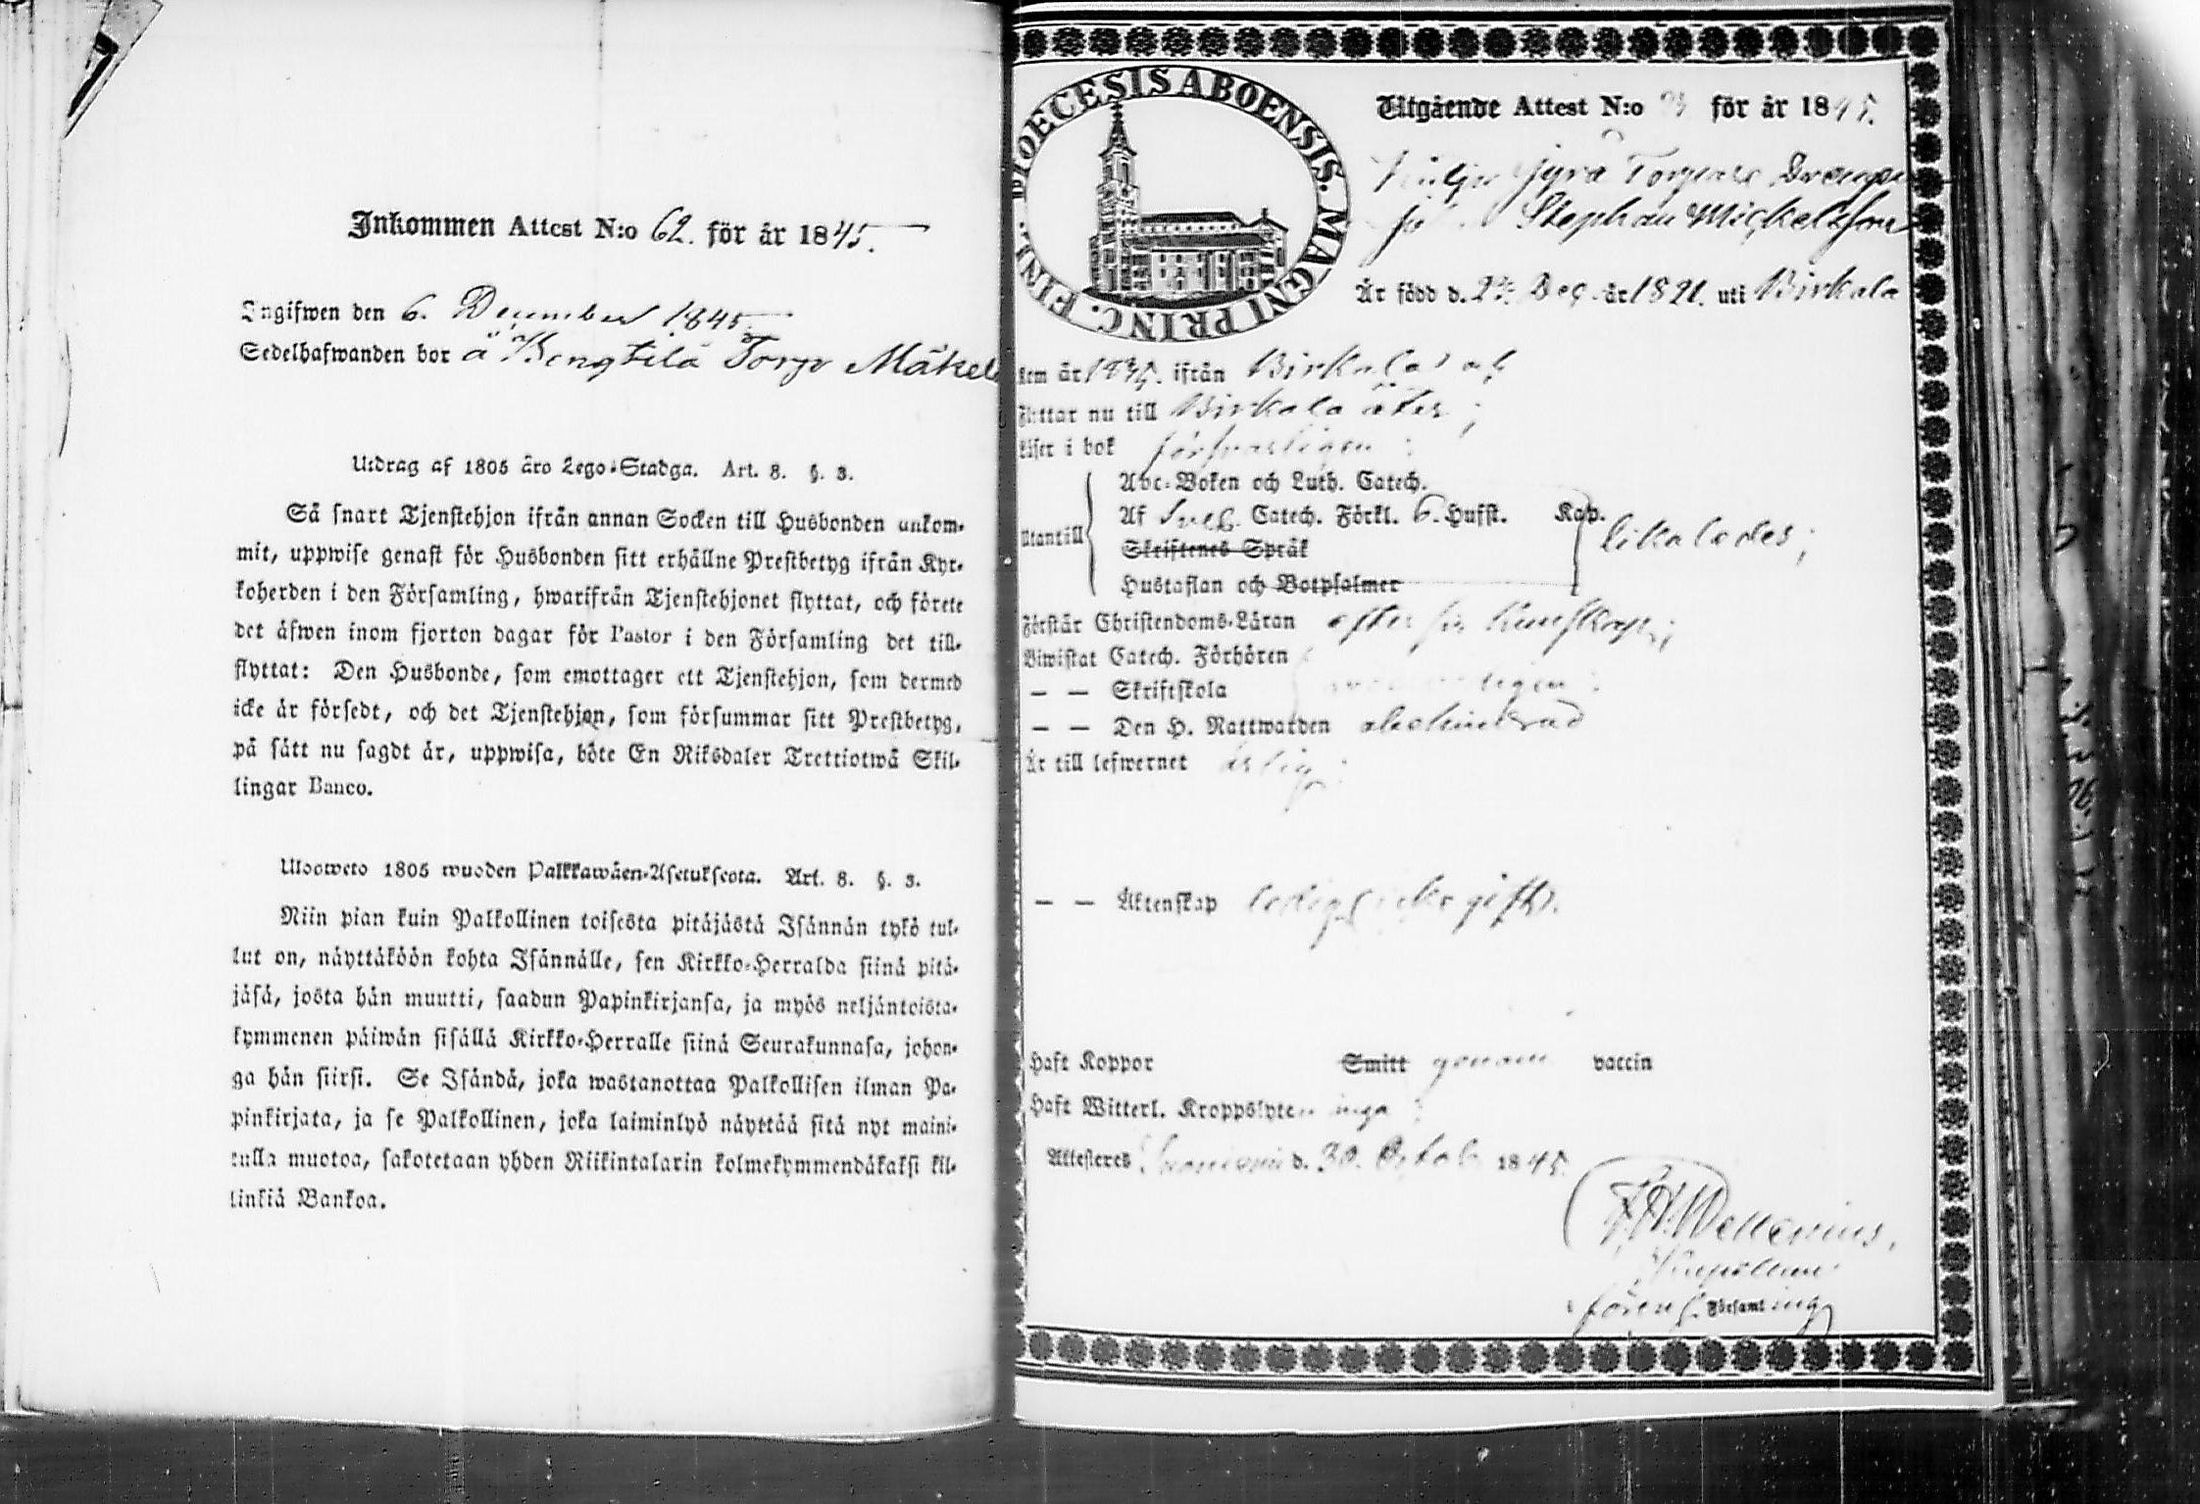 Inkommen Attest N:o 62. för år 1845.
Ingifwen den 6. December 1845
Sedelhafwanden bor å Bengtilä Torp Mäkelä
Utdrag af 1805 års Lego-Stadga. Art. 8. §. 3.
Så snart Tjenstehjon ifrån annan Socken till Husbonden ankom-
mit, uppwise genast för Husbonden sitt erhållne Prestbetyg ifrån Kyr-
koherden i den Församling, hwarifrån Tjenstehjonet flyttat, och förete
det äfwen inom fjorton dagar för Pastor i den Församling det till-
flyttat: Den Husbonde, som emottager ett Tjenstehjon, som dermed
icke är försedt, och det Tjenstehjon, som försummar sitt Prestbetyg,
på sätt nu sagdt är, uppwisa, böte En Riksdaler Trettiotwå Skil-
lingar Banco.
Uloosweto 1805 wuoden Palkkawäen-Asetuksesta. Art. 8. §. 3.
Niin pian kuin Palkollinen toisesta pitäjästä Isännän tykö tul-
lut on, näyttäköön kohta Isännälle, sen Kirkko-Herralda siinä pitä-
jäsä, josta hän muutti, saadun Papinkirjansa, ja myös neljäntoista-
kymmenen päiwän sisällä Kirkko-Herralle siinä Seurakunnasa, johon-
ga hän siirsi. Se Isändä, joka wastanottaa Palkollisen ilman Pa-
pinkirjata, ja se Palkollinen, joka laiminlyö näyttää sitä nyt maini-
tulla muotoa, sakotetaan yhden Riikintalarin kolmekymmendäkaksi kil-
linkiä Bankoa.
DIOECESIS ABOENSIS. MAGNI PRINC. FINL.
Utgående Attest N:o för år 1845.
Jyrä Torpare Drengen
Stephan Mickelsson
Är född d. Dec. år 1821. uti Birkala
Kom år 1835. ifrån Birkala
Flyttar nu till Birkala åter;
Läser i bok försvarligen;
Abc-Boken och Luth. Catech.
Af Sveb. Catech. Förkl. 6. Hufst. Kap.
Utantill
Skriftenes Språk
likaledes;
Hustaflan och Botpsalmer
Förstår Christendoms-Läran efter sin kunskap;
Biwistat Catech. Förhören
— — Skriftskola
— — Den H. Nattwarden ohehindrad
Är till lefwernet ärlig;
— — Äktenskap ledig gift.
Haft Koppor Smitt genom vaccin
Haft Witterl. Kroppslyten inga
Attesteres d. 30. Octob. 1845.
F. H. Wellenius,
Kapellan
i fören. Församling